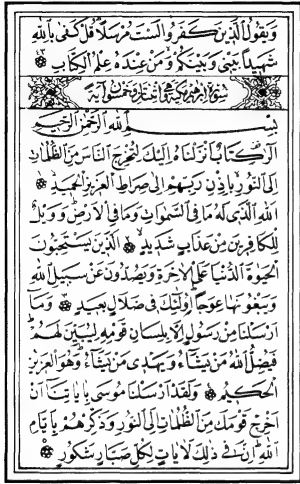 وَيَقُولُ الَّذِينَ كَفَرُوا لَسْتَ مُرْسَلًا قُلْ كَفَى بِاللَّهِ
شَهِيدًا بَيْنِي وَبَيْنَكُمْ وَمَنْ عِنْدَهُ عِلْمُ الْكِتَابِ
سورة ابرهيم مكية وهى اثنتان وخمسون آية
بِسْمِ اللَّهِ الرَّحْمَنِ الرَّحِيمِ
الر كِتَابٌ أَنْزَلْنَاهُ إِلَيْكَ لِتُخْرِجَ النَّاسَ مِنَ الظُّلُمَاتِ
إِلَى النُّورِ بِإِذْنِ رَبِّهِمْ إِلَى صِرَاطِ الْعَزِيزِ الْحَمِيدِ
اللَّهِ الَّذِي لَهُ مَا فِي السَّمَوَاتِ وَمَا فِي الْأَرْضِ وَوَيْلٌ
لِلْكَافِرِينَ مِنْ عَذَابٍ شَدِيدٍ الَّذِينَ يَسْتَحِبُّونَ
الْحَيَوةَ الدُّنْيَا عَلَى الْآخِرَةِ وَيَصُدُّونَ عَنْ سَبِيلِ اللَّهِ
وَيَبْغُونَهَا عِوَجًا أُولَئِكَ فِي ضَلَالٍ بَعِيدٍ وَمَا
أَرْسَلْنَا مِنْ رَسُولٍ إِلَّا بِلِسَانِ قَوْمِهِ لِيُبَيِّنَ لَهُمْ
فَيُضِلُّ اللَّهُ مَنْ يَشَاءُ وَيَهْدِي مَنْ يَشَاءُ وَهُوَ الْعَزِيزُ
الْحَكِيمُ وَلَقَدْ أَرْسَلْنَا مُوسَى بِآيَاتِنَا أَنْ
أَخْرِجْ قَوْمَكَ مِنَ الظُّلُمَاتِ إِلَى النُّورِ وَذَكِّرْهُمْ بِأَيَّامِ
اللَّهِ إِنَّ فِي ذَلِكَ لَآيَاتٍ لِكُلِّ صَبَّارٍ شَكُورٍ